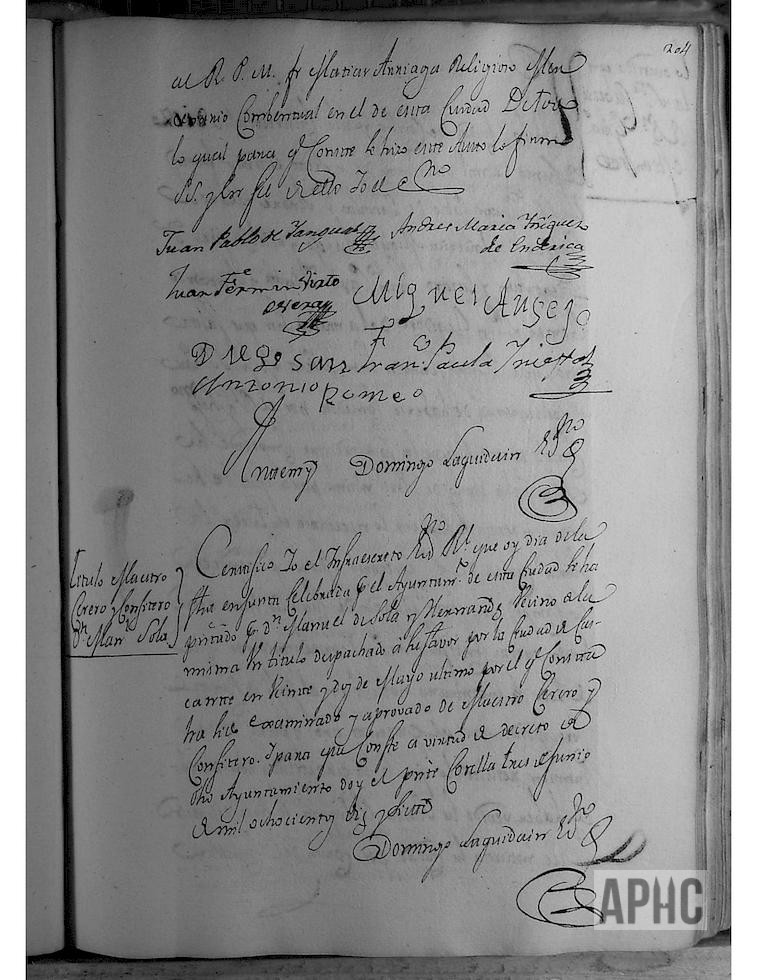 204
al R. P. M. fr Matias Arriaga Religioso Mer
cedario Combentual en el de esta Ciudad De todo
lo qual para q.e Conste se hizo este Auto lo firm
SS. y en fee de ello Yo el Es.no
Juan Pablo de Sanguesa Andres Maria Yñiguez
de Enderica
Juan Fermin Virto
de Vera Miguel Ansejo
Diego Sanz Fran.co Paula Yniesta
Antonio Romeo
Antemy Domingo Laquidain Es.no
Titulo Maestro
Cerero y Confitero
D.n Man.l Sola
Certifico Yo el Infraescrito Es.no R.l que oy dia de la
fha en junta Celebrada p.r el Ayuntam.to de esta Ciudad se ha
pñtado p.r D.n Manuel de Sola y Hernand.z Vecino de la
misma Un titulo despachado a su favor por la Ciudad de Cas-
cante en Veinte y dos de Mayo ultimo por el q.e Consta
ha sido examinado y aprovado de Maestro Cerero y
Confitero. Y para que Conste a virtud de decreto de
dho Ayuntamiento doy el pñte Corella tres de Junio
de mil ochocientos diez y siete
Domingo Laquidain Es.no
APHC